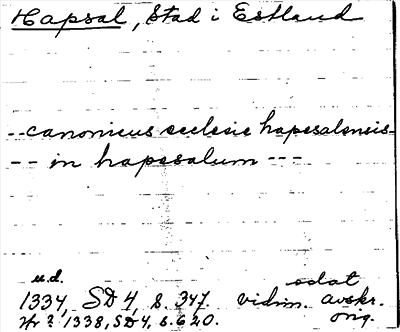 Hapsal, Stad i Estland
--canonicus ecclesie hapesalensis-
-- in hapesalum ---
u.d. odat
1334, SD 4, s. 347. vidim. avskr.
Nr ? 1338, SD 4, s. 620. orig.